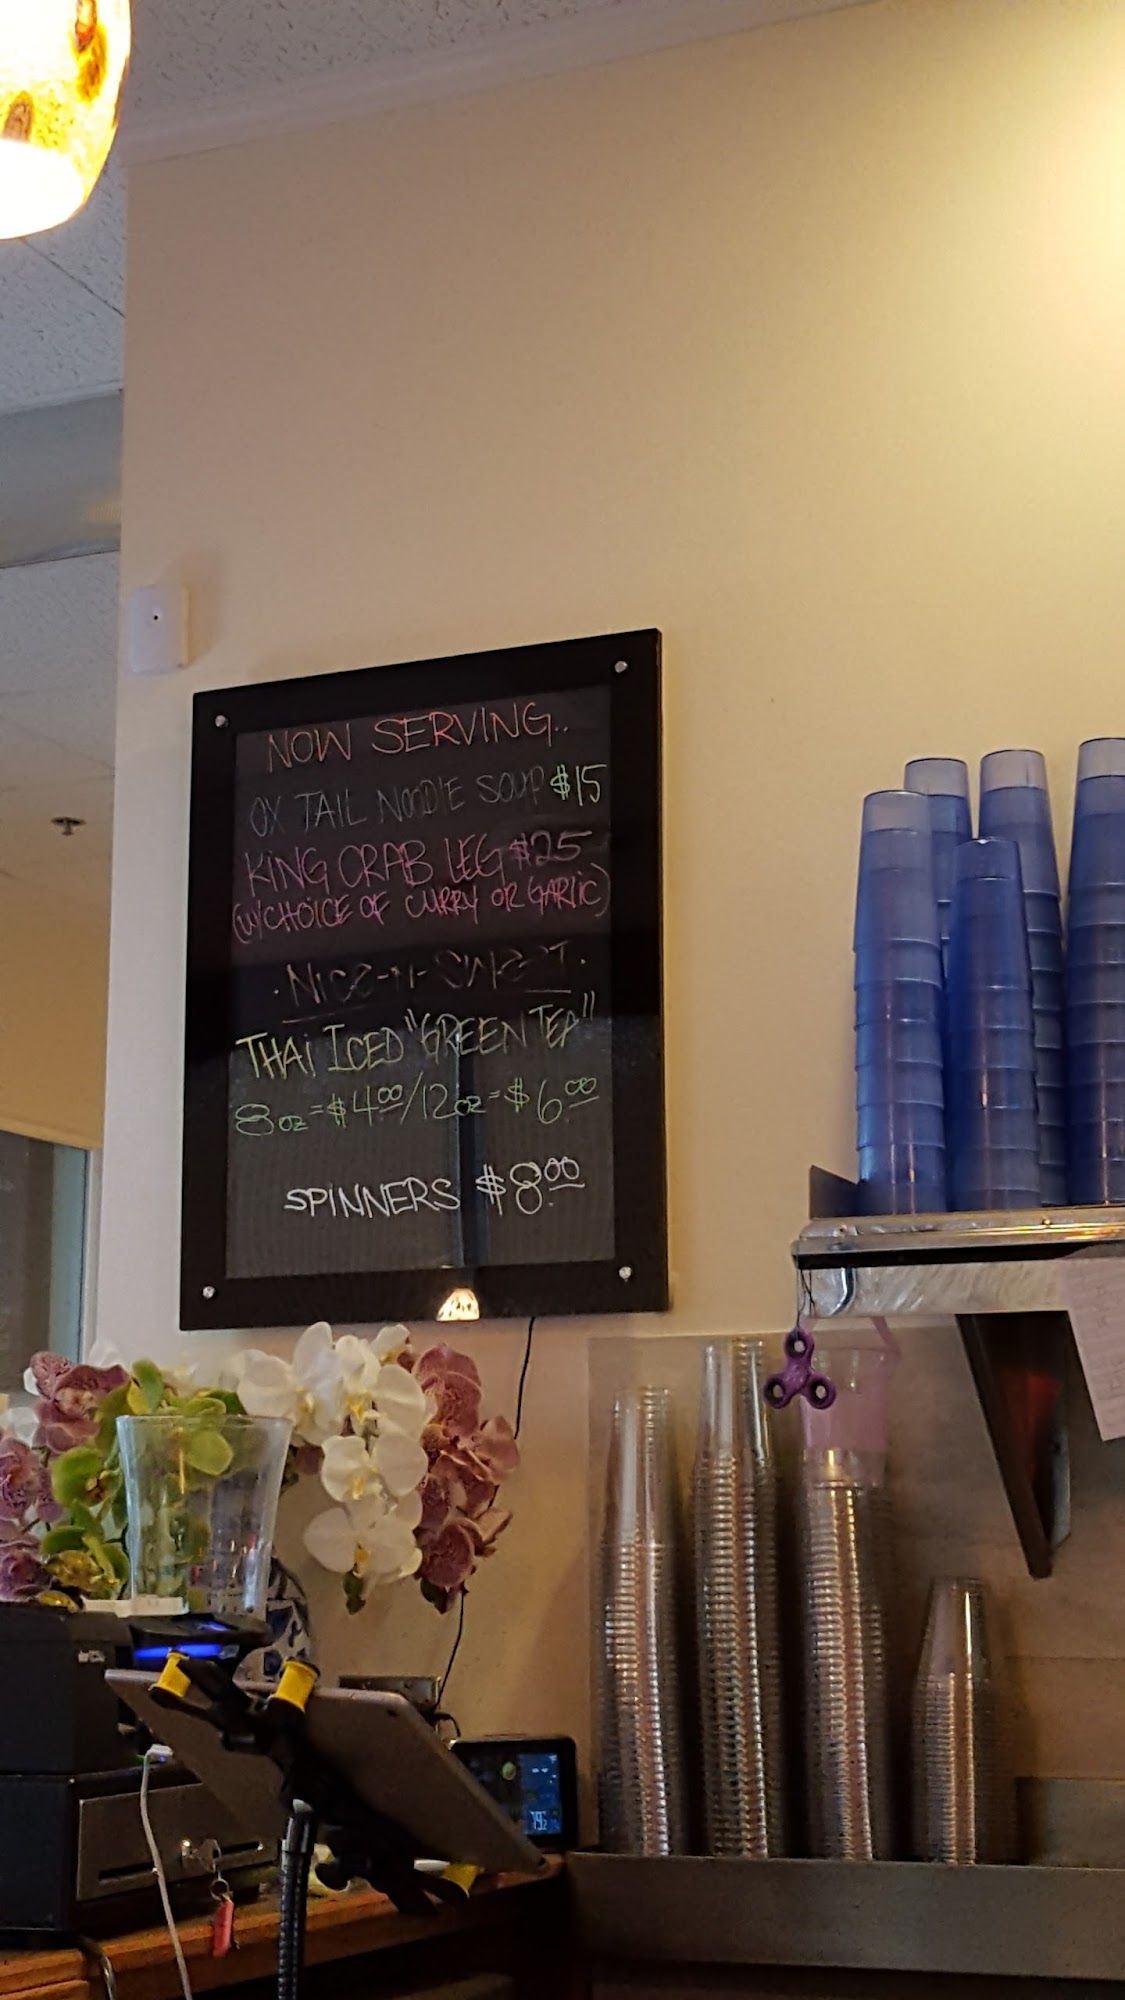 NOW SERVING..
OX TAIL NOODLE SOUP $15
KING CRAB LEG $25
(W/CHOICE OF CURRY OR GARLIC)
. NICE-N-SWEET .
THAI ICED "GREEN TEA"
8oz = $4.00/12oz = $6.00
SPINNERS $8.00